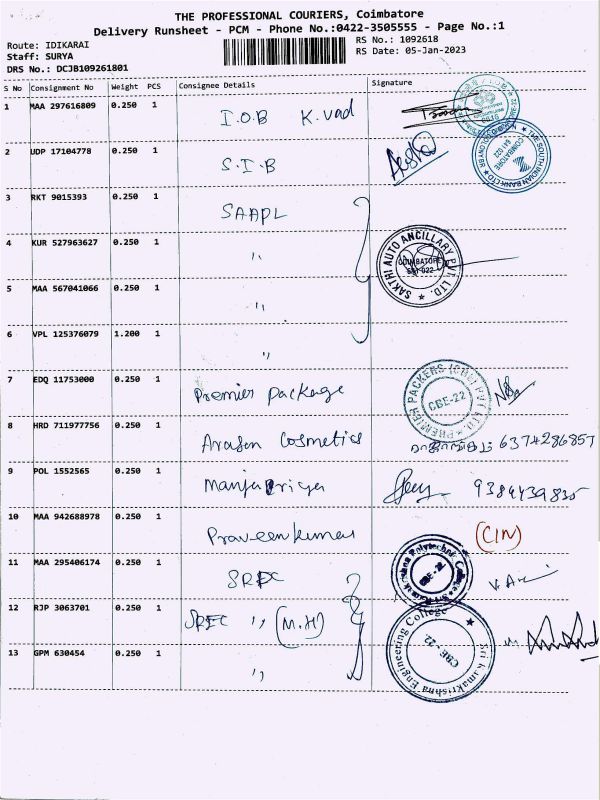 THE PROFESSIONAL COURIERS, Coimbatore
Delivery Runsheet - PCM - Phone No.:0422-3505555 - Page No.:1
Route: IDIKARAI
RS No.: 1092618
Staff: SURYA
RS Date: 05-Jan-2023
DRS No.: DCJB109261801
S No Consignment No Weight PCS Consignee Details Signature
1 MAA 297616809 0.250 1 I.O.B K.vad
2 UDP 17104778 0.250 1 S.I.B
THE SOUTH INDIAN BANK LTD
COIMBATORE
641 022
3 RKT 9015393 0.250 1 SAAPL
4 KUR 527963627 0.250 1 "
SAKTHI AUTO ANCILLARY PVT. LTD.
COIMBATORE
641 022
5 MAA 567041066 0.250 1 "
6 VPL 125376079 1.200 1 "
7 EDQ 11753000 0.250 1 Premier Package
PREMIER PACKERS (CBE) PVT LTD.
CBE-22
8 HRD 711977756 0.250 1 Arasan Cosmetics 6374286857
9 POL 1552565 0.250 1 Manjupriya 9384439835
10 MAA 942688978 0.250 1 Praveenkumar (CIN)
11 MAA 295406174 0.250 1 SRPC
Sri Ramakrishna Polytechnic College
CBE-22
12 RJP 3063701 0.250 1 SREC " (M.H)
Sri Ramakrishna Engineering College
CBE-22
13 GPM 630454 0.250 1 "